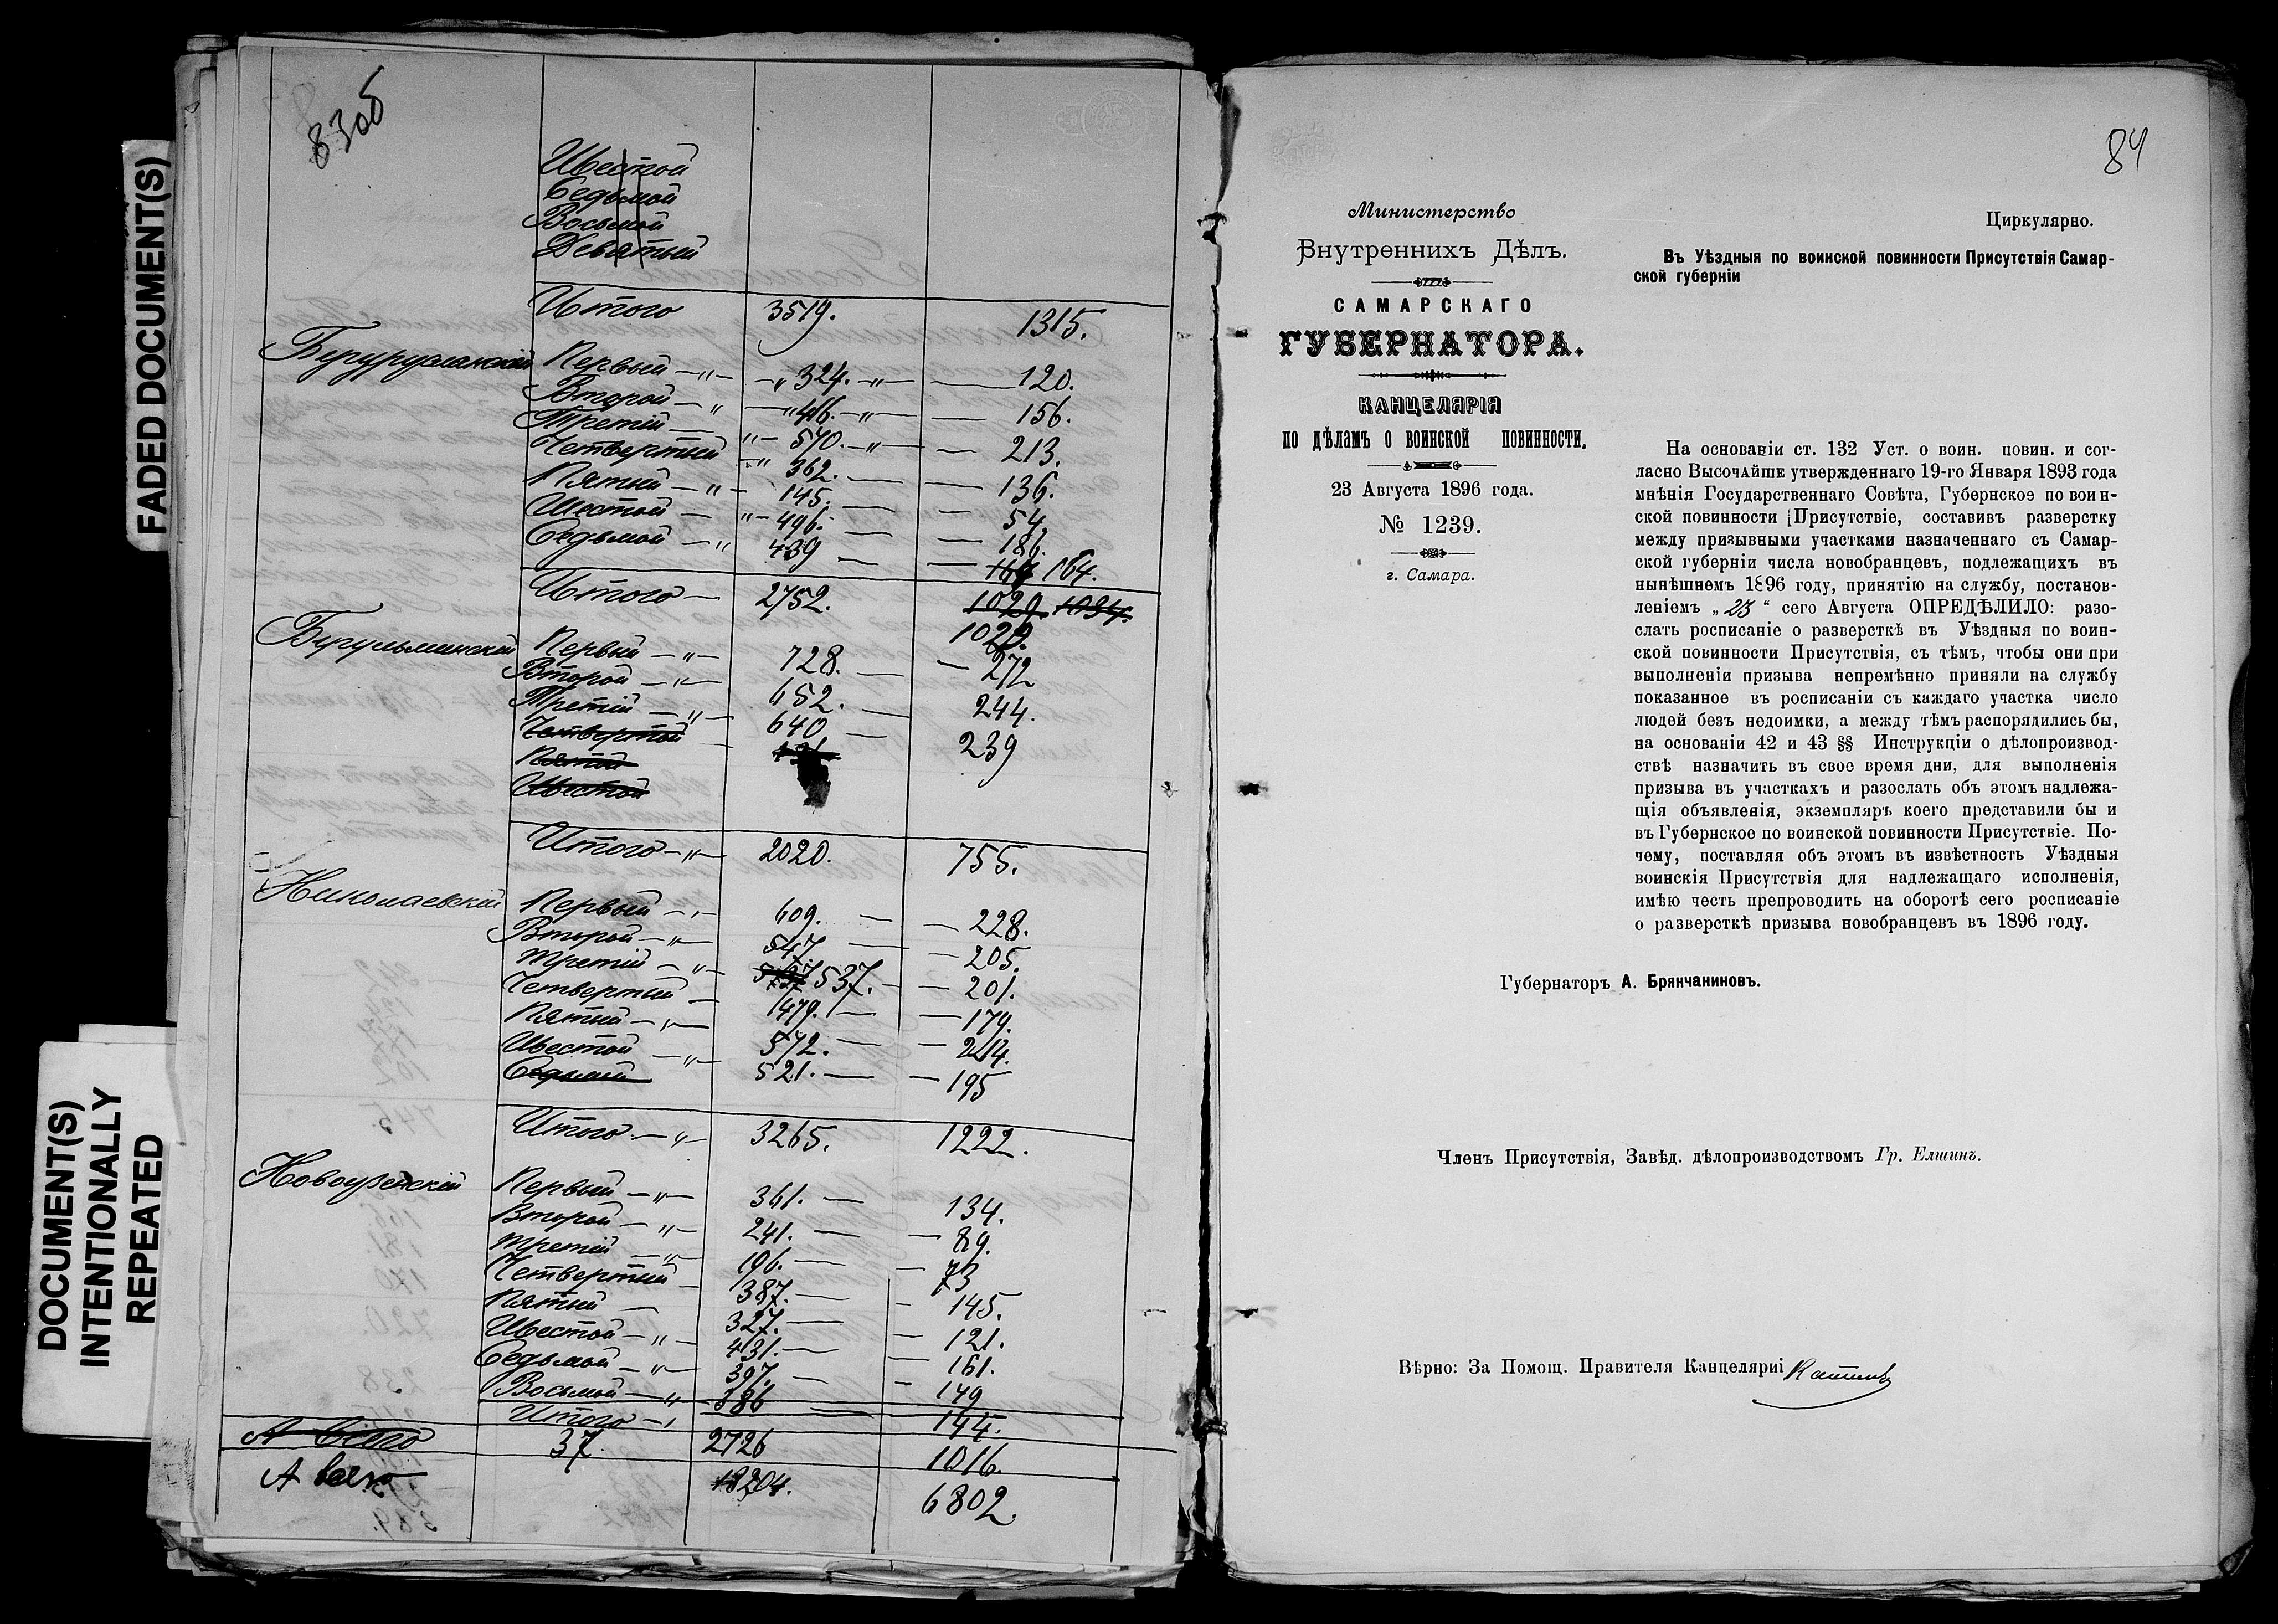 FADED DOCUMENT(S)
DOCUMENT(S)
INTENTIONALLY
REPEATED
83об
Шестой
Седьмой
Восьмой
Девятый
Итого 3519. 1315.
Бугурусланскій Первый —"— —"324.—"— — 120.
Второй —"— —"416.—"— — 156.
Третій — "— 570.—"— — 213.
Четвертый —" 362. — — 136.
Пятый —"— 145. — — 54.
Шестой — "— 496. — — 186.
Седьмой —" 439 — — 164 164.
Итого — 2752. 1029. 1034.
1029.
Бугульминскій Первый —"— 728. — — 272
Второй —"— 652. — 244.
Третій —"— 640 — 239
Четвертой
Пятой
Шестой
Итого —"— 2020. 755.
Николаевскій Первый —"— 609. — — 228.
Второй —"— 547. — — 205.
Третій —"— 537. — 201.
Четвертый — 479. — — 179.
Пятый —"— 572. — — 214.
Шестой —"— 521. — — 195
Седьмой
Итого —"— 3265. 1222.
Новоузенскій Первый —"— 361. — 134.
Второй —"— 241. — — 89.
Третій —"— 196. — — 73
Четвертый — 387. — — 145.
Пятый — 327. — — 121.
Шестой —"— 431. — — 161.
Седьмой —"— 397. — — 149
Восьмой —"— 386 — 144.
Итого —"
А всего 37. 2726 1016.
А всего 18204. 6802.
84
Министерство
Внутреннихъ Дѣлъ.
САМАРСКАГО
ГУБЕРНАТОРА.
КАНЦЕЛЯРІЯ
ПО ДѢЛАМЪ О ВОИНСКОЙ ПОВИННОСТИ.
23 Августа 1896 года.
№ 1239.
г. Самара.
Циркулярно.
Въ Уѣздныя по воинской повинности Присутствія Самар-
ской губерніи
На основаніи ст. 132 Уст. о воин. повин. и сог-
ласно ВысочАйше утвержденнаго 19-го Января 1893 года
мнѣнія Государственнаго Совѣта, Губернскоэ по воин-
ской повинности Присутствіе, составивъ разверстку
между призывными участками назначеннаго съ Самар-
ской губерніи числа новобранцевъ, подлежащихъ въ
нынѣшнемъ 1896 году, принятію на службу, постанов-
леніемъ „ 23 “ сего Августа ОПРЕДѢЛИЛО: разо-
слать росписаніе о разверсткѣ въ Уѣздныя по воин-
ской повинности Присутствія, съ тѣмъ, чтобы они при
выполненіи призыва непремѣнно приняли на службу
показанное въ росписаніи съ каждаго участка число
людей безъ недоимки, а между тѣмъ распорядились бы,
на основаніи 42 и 43 §§ Инструкціи о дѣлопроизвод-
ствѣ назначить въ свое время дни, для выполненія
призыва въ участкахъ и разослать объ этомъ надлежа-
щія объявленія, экземпляръ коего представили бы и
въ Губернское по воинской повинности Присутствіе. По-
чему, поставляя объ этомъ въ извѣстность Уѣздныя
воинскія Присутствія для надлежащаго исполненія,
имѣю честь препроводить на оборотѣ сего росписаніе
о разверсткѣ призыва новобранцевъ въ 1896 году.
Губернаторъ А. Брянчаниновъ.
Членъ Присутствія, Завѣд. дѣлопроизводствомъ Гр. Елшинъ.
Вѣрно: За Помощ. Правителя Канцеляриі